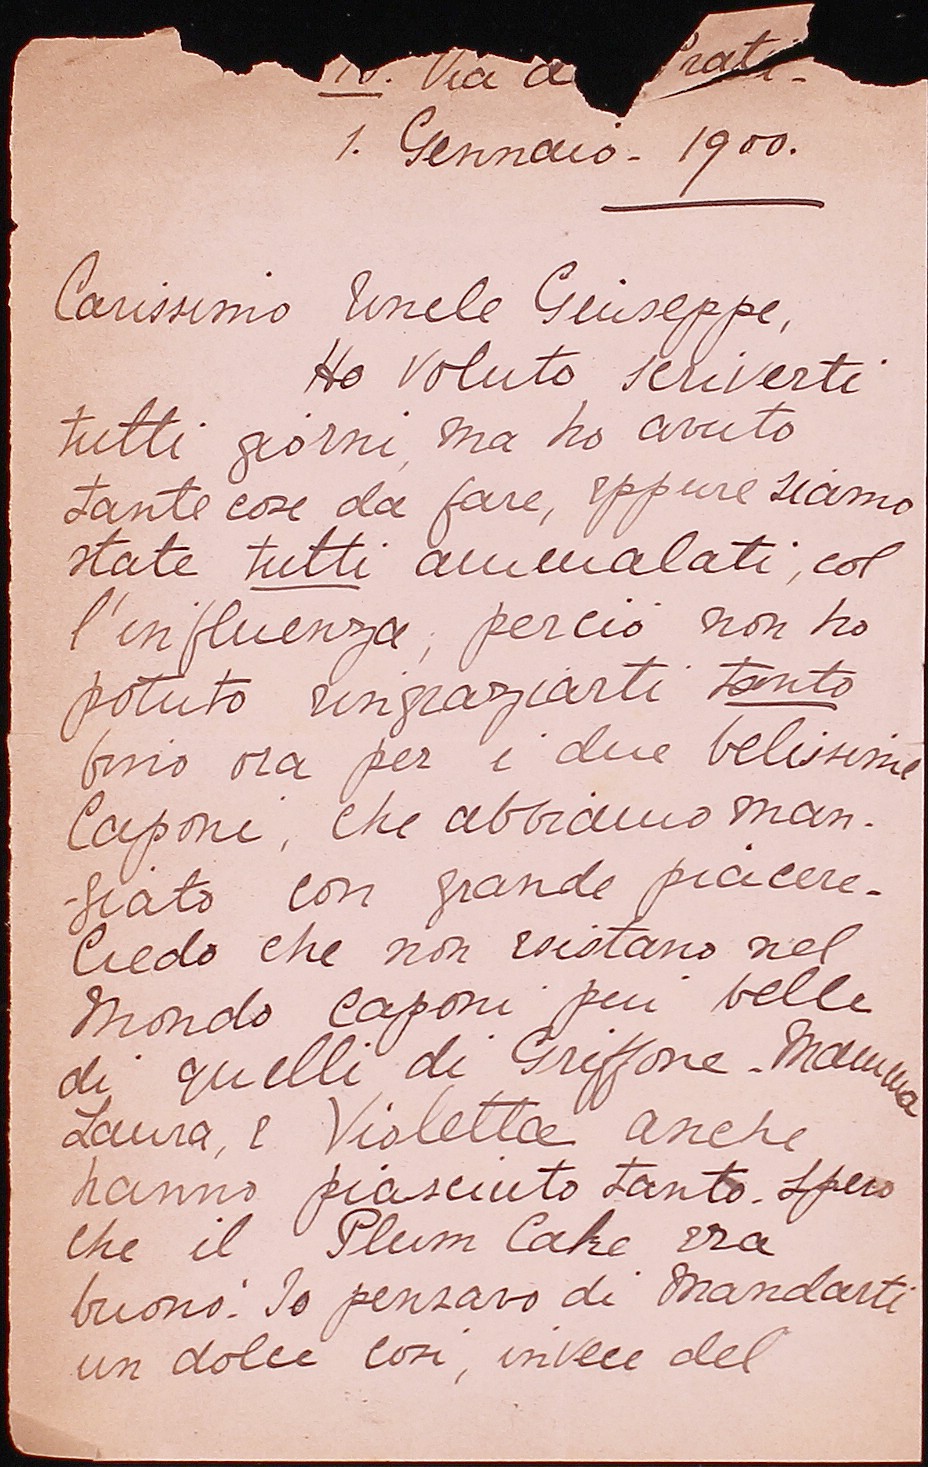 10. Via d Prati-
1. Gennaio - 1900.
Carissimo Uncle Geiuseppe,
Ho voluto scriverti
tutti giorni, ma ho avuto
tante cose da fare, eppure siamo
state tutti ammalati, col
l'influenza, perciò non ho
potuto ringraziarti tanto
fino ora per i due belissime
Caponi, che abbiamo man-
-giato con grande piacere-
Credo che non esistano nel
Mondo caponi piu belle
di quelli di Griffone - Mamma
Laura, e Violetta anche
hanno piasciuto tanto. Spero
che il Plum Cake era
buono. Io pensavo di mandarti
un dolce cosi, invece del